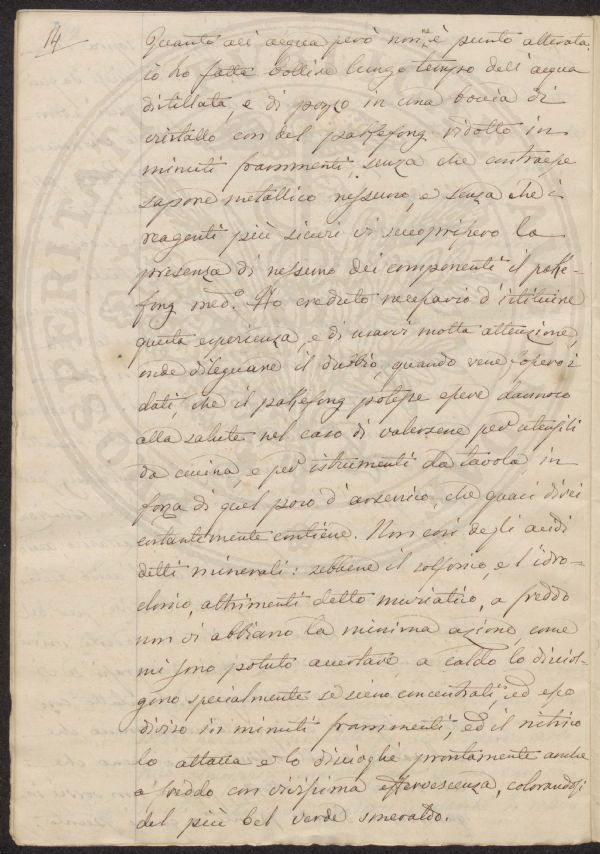 14
Quanto all'acqua però non ne è punto alterata.
Io ho fatto bollire lungo tempo dell'acqua
distillata, e di pozzo in una boccia di
cristallo con del pakfong ridotto in
minuti frammenti, senza che contraesse
sapore metallico nessuno, e senza che i
reagenti più sicuri vi scuoprissero la
presenza di nessuno dei componenti il pak-
fong med.° Ho creduto necessario d'istituire
questa esperienza, e di usarvi molta attenzione,
onde dileguare il dubbio, quando ve ne fossero i
dati, che il pakfong potesse essere dannoso
alla salute nel caso di valersene per utensili
da cucina, e per istrumenti da tavola in
forza di quel poco d'arsenico, che quasi direi
costantemente contiene. Non così degli acidi
detti minerali: sebbene il solforico, e l'idro-
clorico, altrimenti detto muriatico, a freddo
non vi abbiano la minima azione, come
mi sono potuto accertare, a caldo lo disciol-
gono specialmente se sieno concentrati, ed esso
diviso in minuti frammenti, ed il nitrico
lo attacca e lo discioglie prontamente anche
a freddo con vivissima effervescenza, colorandosi
del più bel verde smeraldo.